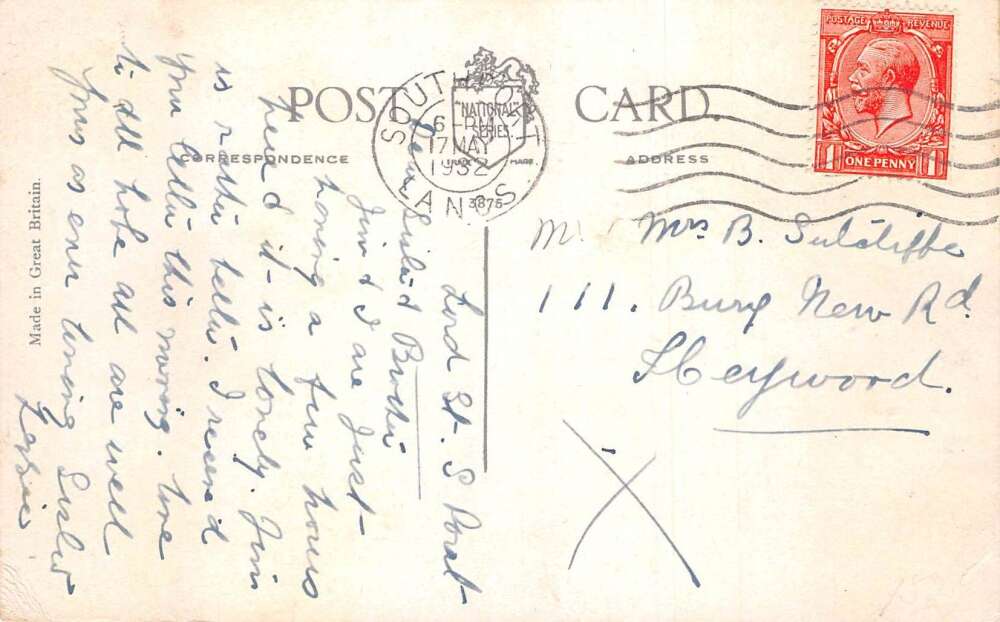 POST CARD.
CORRESPONDENCE
ADDRESS
NATIONAL
SERIES
MADE IN GREAT BRITAIN.
SOUTHPORT
6 PM
17 MAY
1932
LANCS
3875
POSTAGE REVENUE
1 ONE PENNY 1
Mr Mrs B. Sutcliffe
111. Bury New Rd.
Heywood.
X
Lord St. S Port
Dear Sister & Brother
Jim & I are Just
having a few hours
here & it is lovely. Jim
is rather better. I received
your letter this morning. love
to all hope all are well
Yours as ever loving Sister